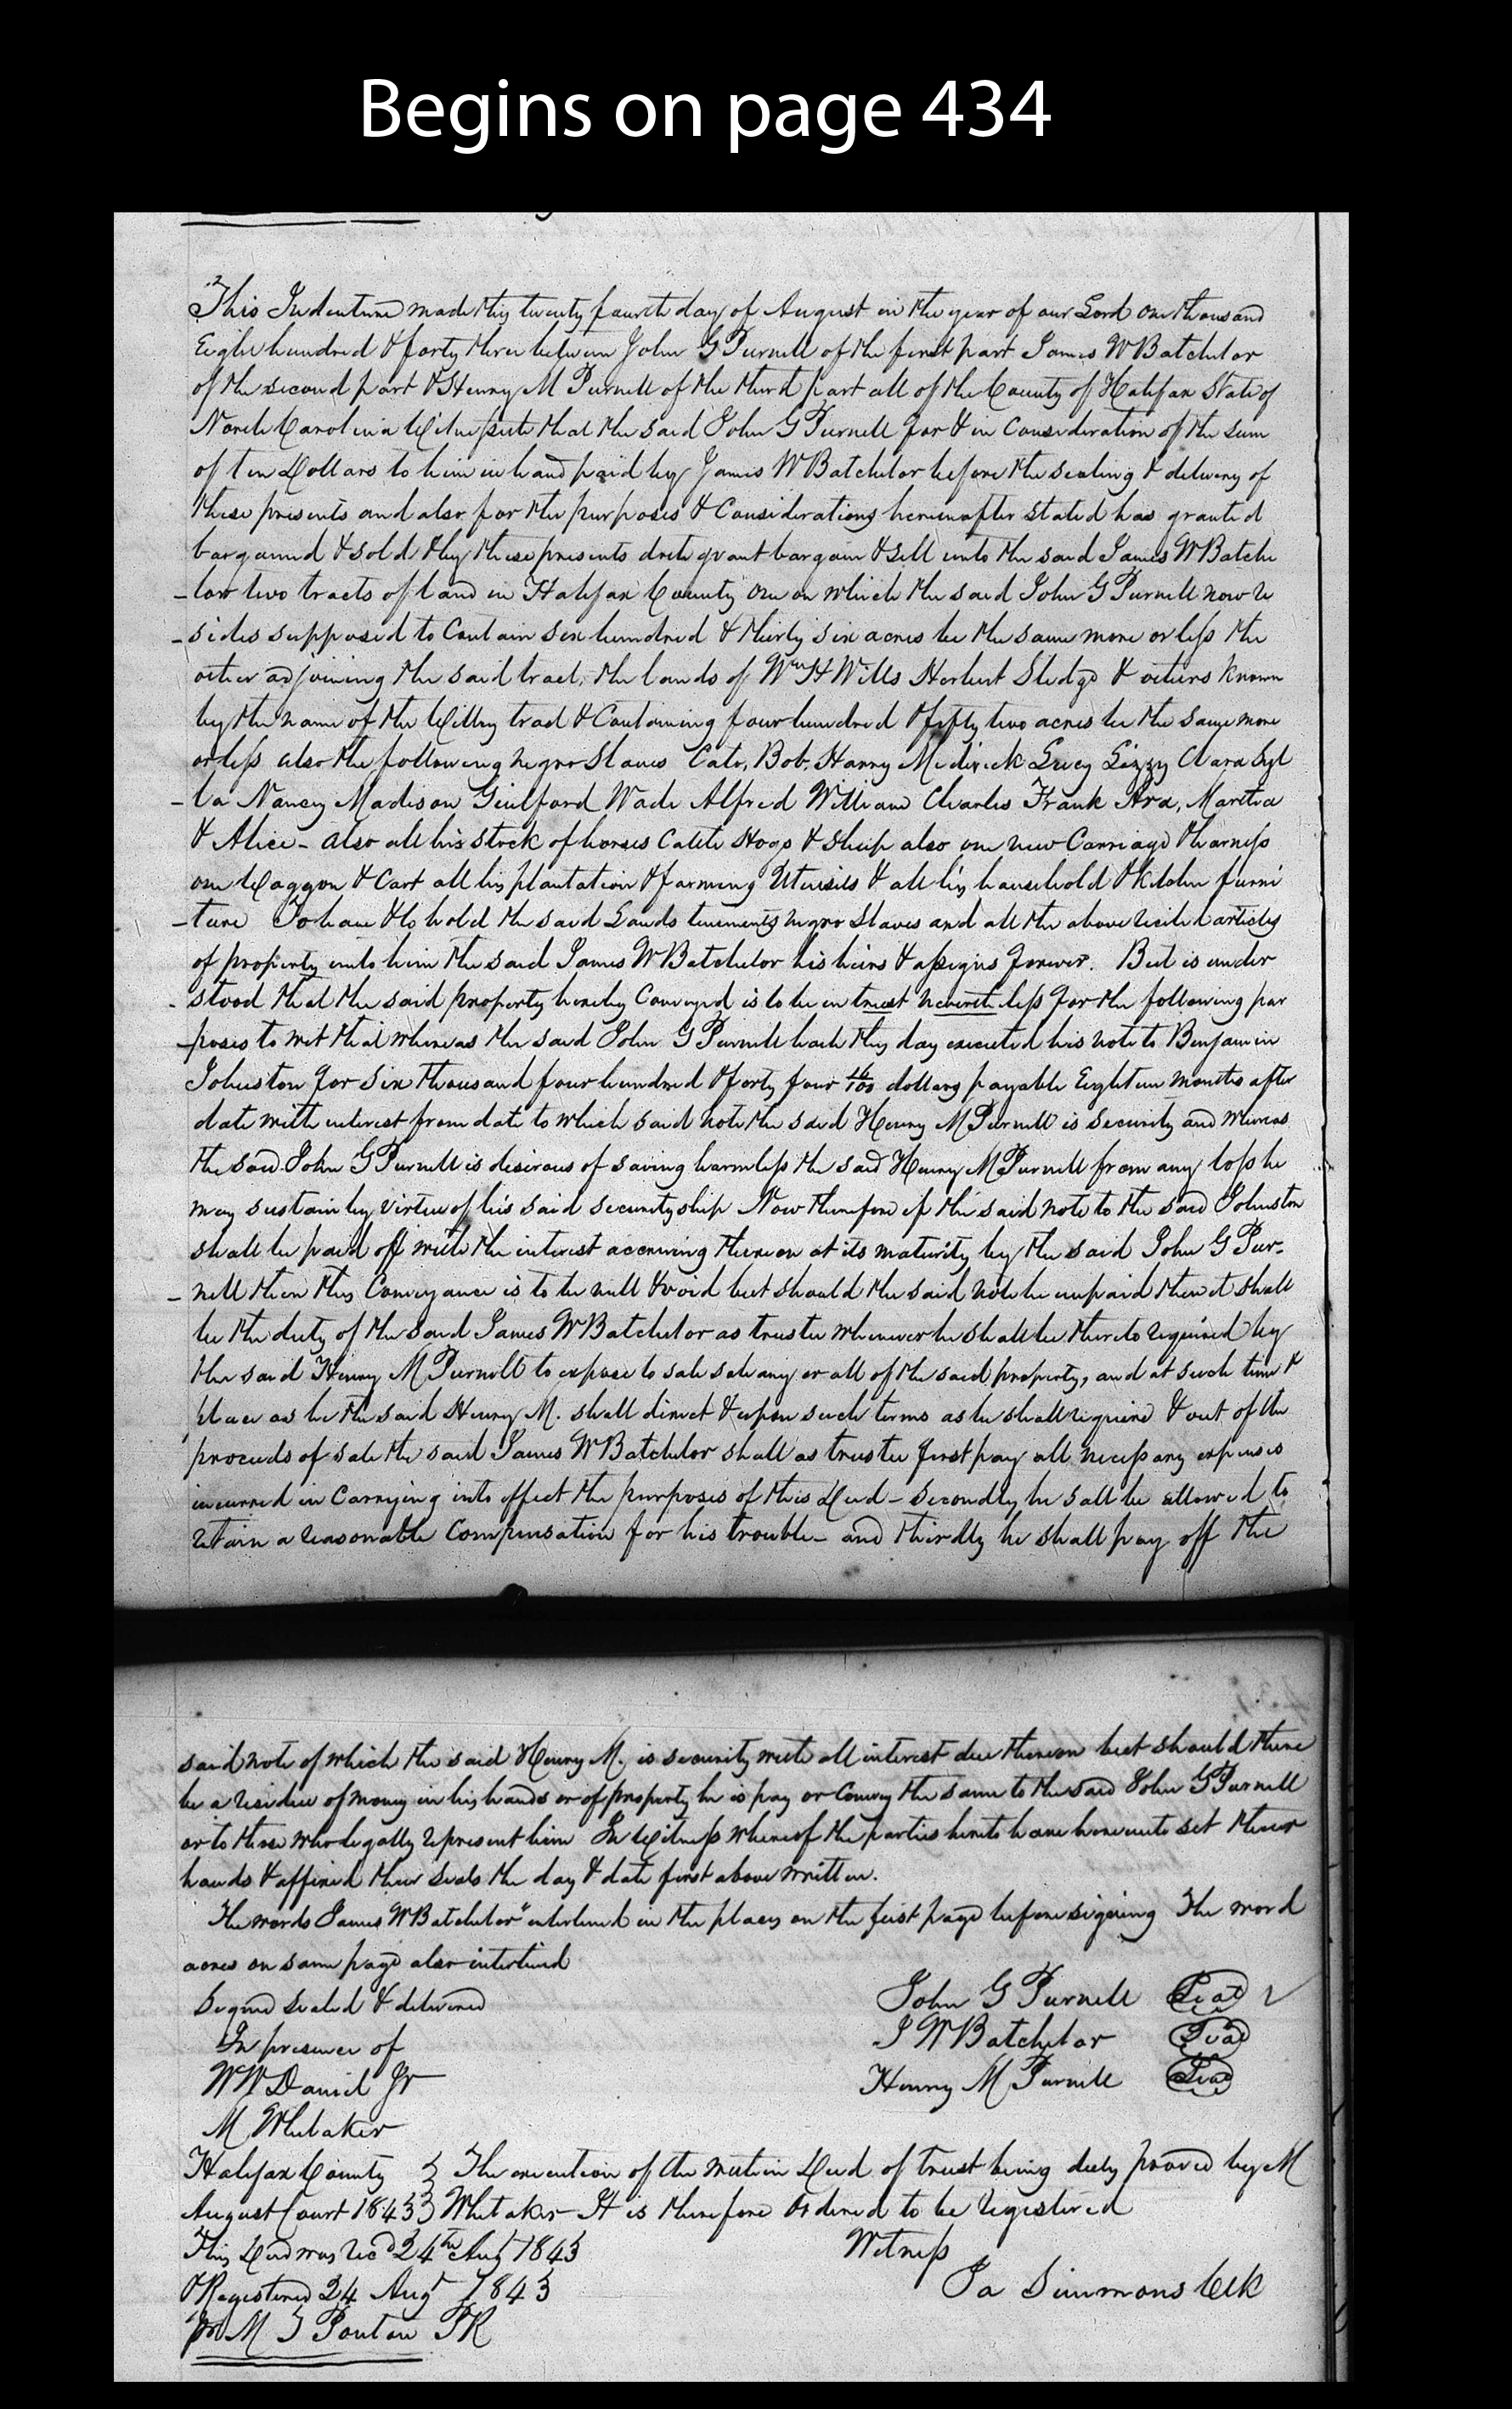 Begins on page 434
This Indenture made this twenty fourth day of August in the year of our Lord one thousand
Eight hundred & forty three between John G Purnell of the first part James W Batchelor
of the second part & Henry M Purnell of the third part all of the County of Halifax State of
North Carolina Witnesseth that the said John G Purnell for & in Consideration of the sum
of ten Dollars to him in hand paid by James W Batchelor before the sealing & delivery of
these presents and also for the purposes & Considerations hereinafter stated has granted
bargained & sold & by these presents doth grant bargain & sell unto the said James W Batche
-lor two tracts of land in Halifax County one on which the said John G Purnell now re
-sides supposed to Contain six hundred & thirty six acres be the same more or less the
other adjoining the said tract, the lands of Wm H Wills Herbert Sledge & others known
by the name of the Willey tract & Containing four hundred & fifty two acres be the same more
or less also the following negro Slaves Cato, Bob, Harry Mederick Lucy Lizzy Clara Syl
-la Nancy Madison Guilford Wade Alfred William Charles Frank Ara, Martha
& Alice - also all his stock of horses Cattle Hogs & Sheep also one new Carriage & harness
one Waggon & Cart all his plantation & farming Utensils & all his household & Kitchen furni
-ture To have & to hold the said Lands tenements negro Slaves and all the above recited articles
of property unto him the said James W Batchelor his heirs & assigns forever. But is under
-stood that the said property hereby Conveyed is to be in trust nevertheless for the following pur
-poses to wit that whereas the said John G Purnell hath this day executed his note to Benjamin
Johnston for Six thousand four hundred & forty four 16/100 dollars payable Eighteen months after
date with interest from date to which said note the said Henry M Purnell is security and whereas
the said John G Purnell is desirous of saving harmless the said Henry M Purnell from any loss he
may sustain by virtue of his said securityship Now therefore if the said note to the said Johnston
shall be paid off with the interest accruing thereon at its maturity by the said John G Pur-
-nell then this Conveyance is to be null & void but should the said note be unpaid then it shall
be the duty of the said James W Batchelor as trustee whenever he shall be thereto required by
the said Henry M Purnell to expose to sale sale any or all of the said property, and at such time &
place as he the said Henry M. shall direct & upon such terms as he shall require & out of the
proceeds of sale the said James W Batchelor shall as trustee first pay all necessary expenses
incurred in Carrying into effect the purposes of this Deed - Secondly he sall be allowed to
retain a reasonable Compensation for his trouble - and thirdly he shall pay off the
said note of which the said Henry M. is security with all interest due thereon but should there
be a residue of money in his hands or of property he is pay or Convey the same to the said John G Purnell
or to those who legally represent him In Witness whereof the parties hereto have hereunto set their
hands & affixed their seals the day & date first above written.
The words James W Batchelor" interlined in the places on the first page before signing The word
acres on same page also interlined
Signed sealed & delivered John G Purnell Seal
In presence of J W Batchelor Seal
WW Daniel Jr Henry M Purnell Seal
M Whitaker
Halifax County } The execution of the within Deed of trust being duly proved by M
August Court 1843 } Whitaker It is therefore Ordered to be registered
This Deed was recd 24th Aug 1843 Witness
& Registered 24 Augt 1843 Ja Simmons Clk
pr M T Ponton PR